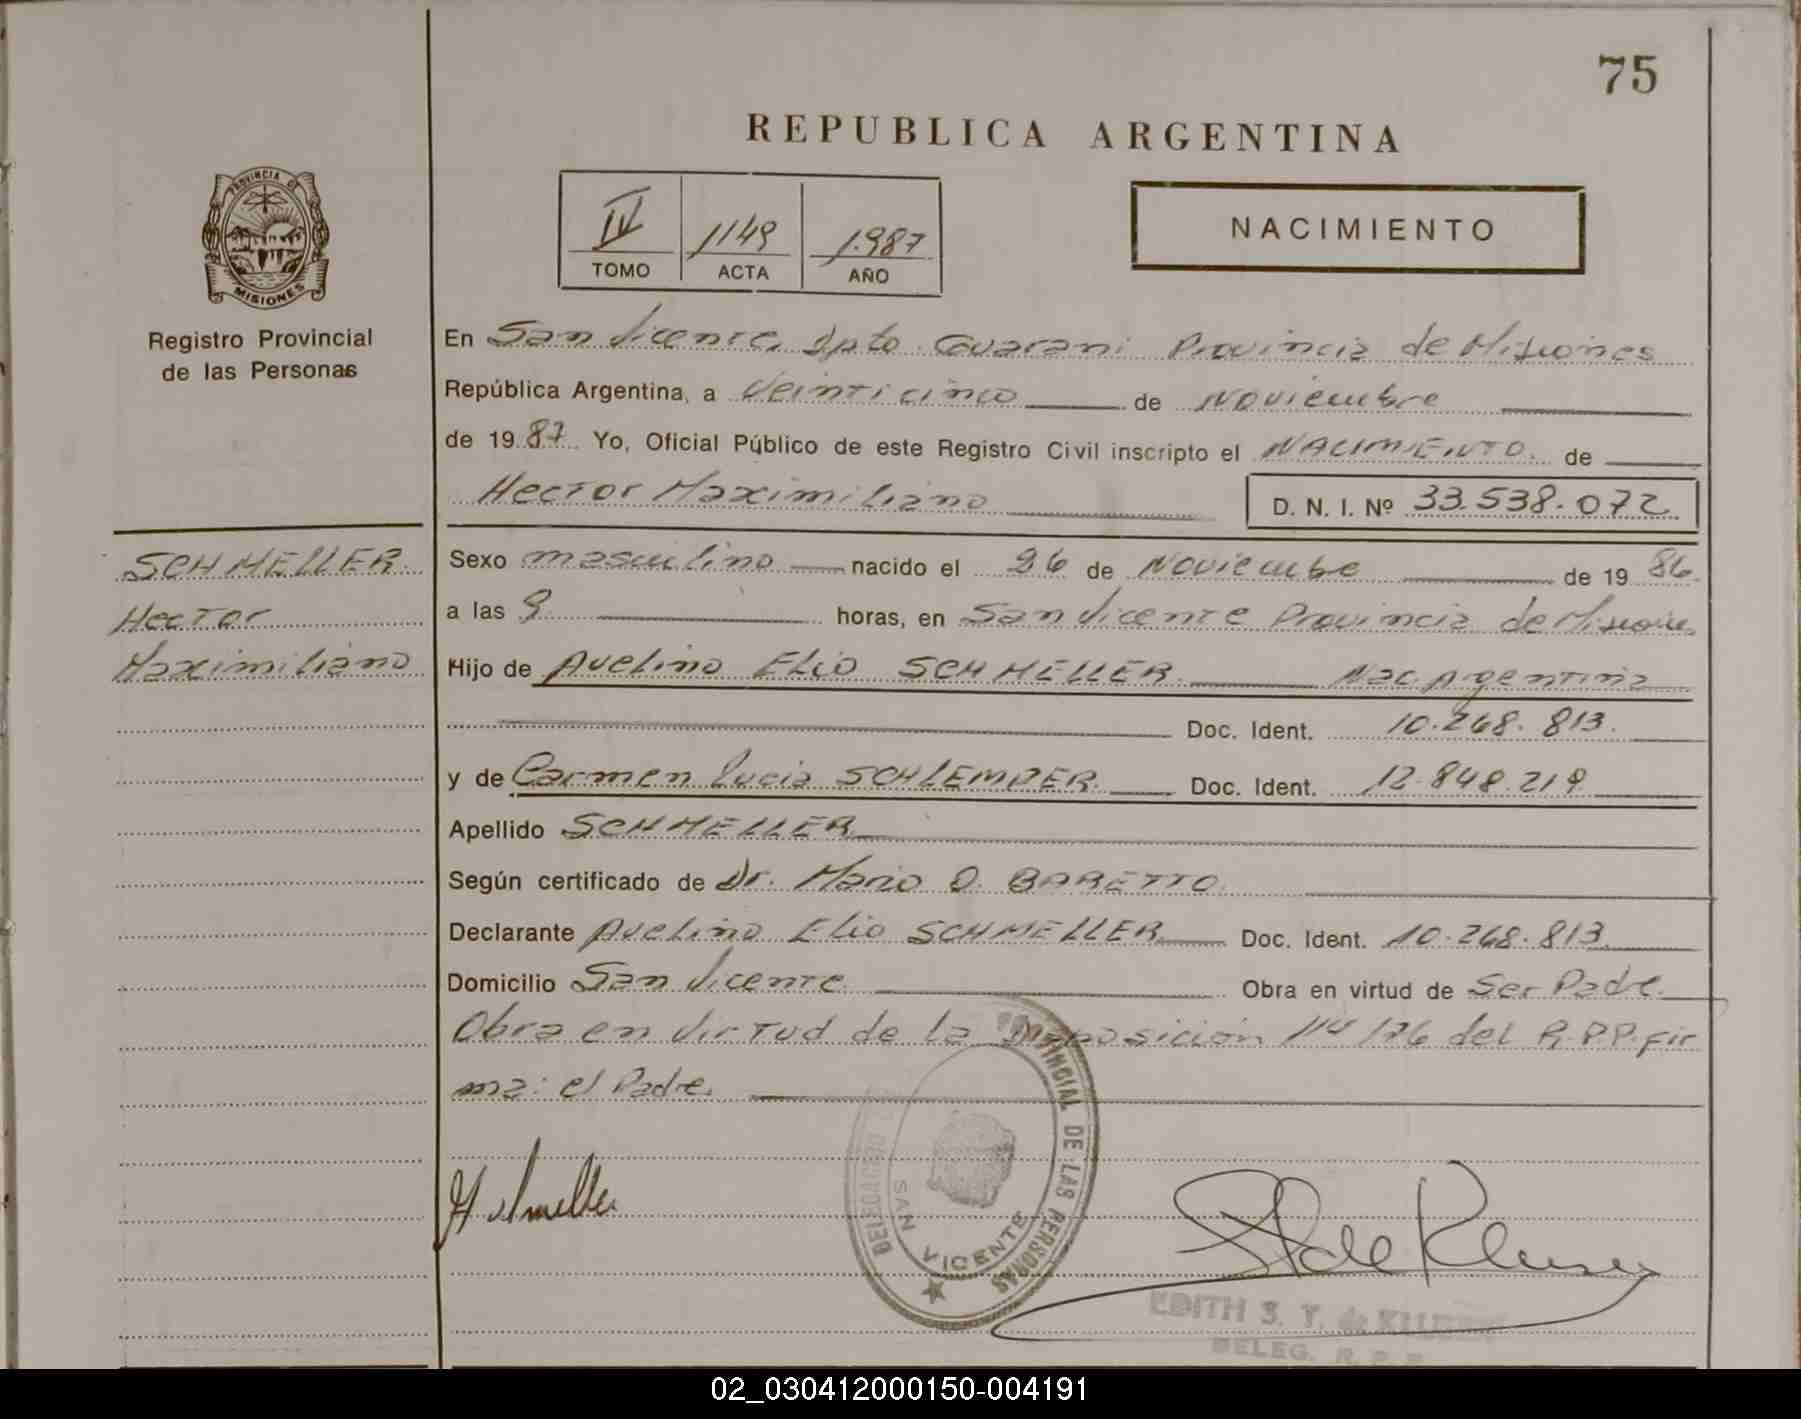 75
REPUBLICA ARGENTINA
IV 1149 1.987
TOMO ACTA AÑO
NACIMIENTO
PROVINCIA DE
MISIONES
Registro Provincial
de las Personas
SCHMELLER.
Hector
Maximiliano
En San Vicente, Dpto Guarani Provincia de Misiones
República Argentina, a Veinticinco de Noviembre
de 1987. Yo, Oficial Público de este Registro Civil inscripto el NACIMIENTO. de
Hector Maximiliano D. N. I. Nº 33.538.072
Sexo masculino nacido el 26 de Noviembe de 1986
a las 9 horas, en San Vicente Provincia de Misiones
Hijo de Avelino Elio SCHMELLER. Nac. Argentina
Doc. Ident. 10.268.813.
y de Carmen Lucia SCHLEMPER. Doc. Ident. 12.848.219
Apellido SCHMELLER
Según certificado de Dr. Mario O. BARETTO.
Declarante Avelino Elio SCHMELLER Doc. Ident. 10.268.813.
Domicilio San Vicente. Obra en virtud de Ser Padre.
Obra en virtud de la Disposición 114/76 del R.P.P. fir
ma: el Padre.
DELEGACION PROVINCIAL DE LAS PERSONAS
SAN VICENTE
EDITH S. T. de
DELEG. R. P. P.
02_030412000150-004191